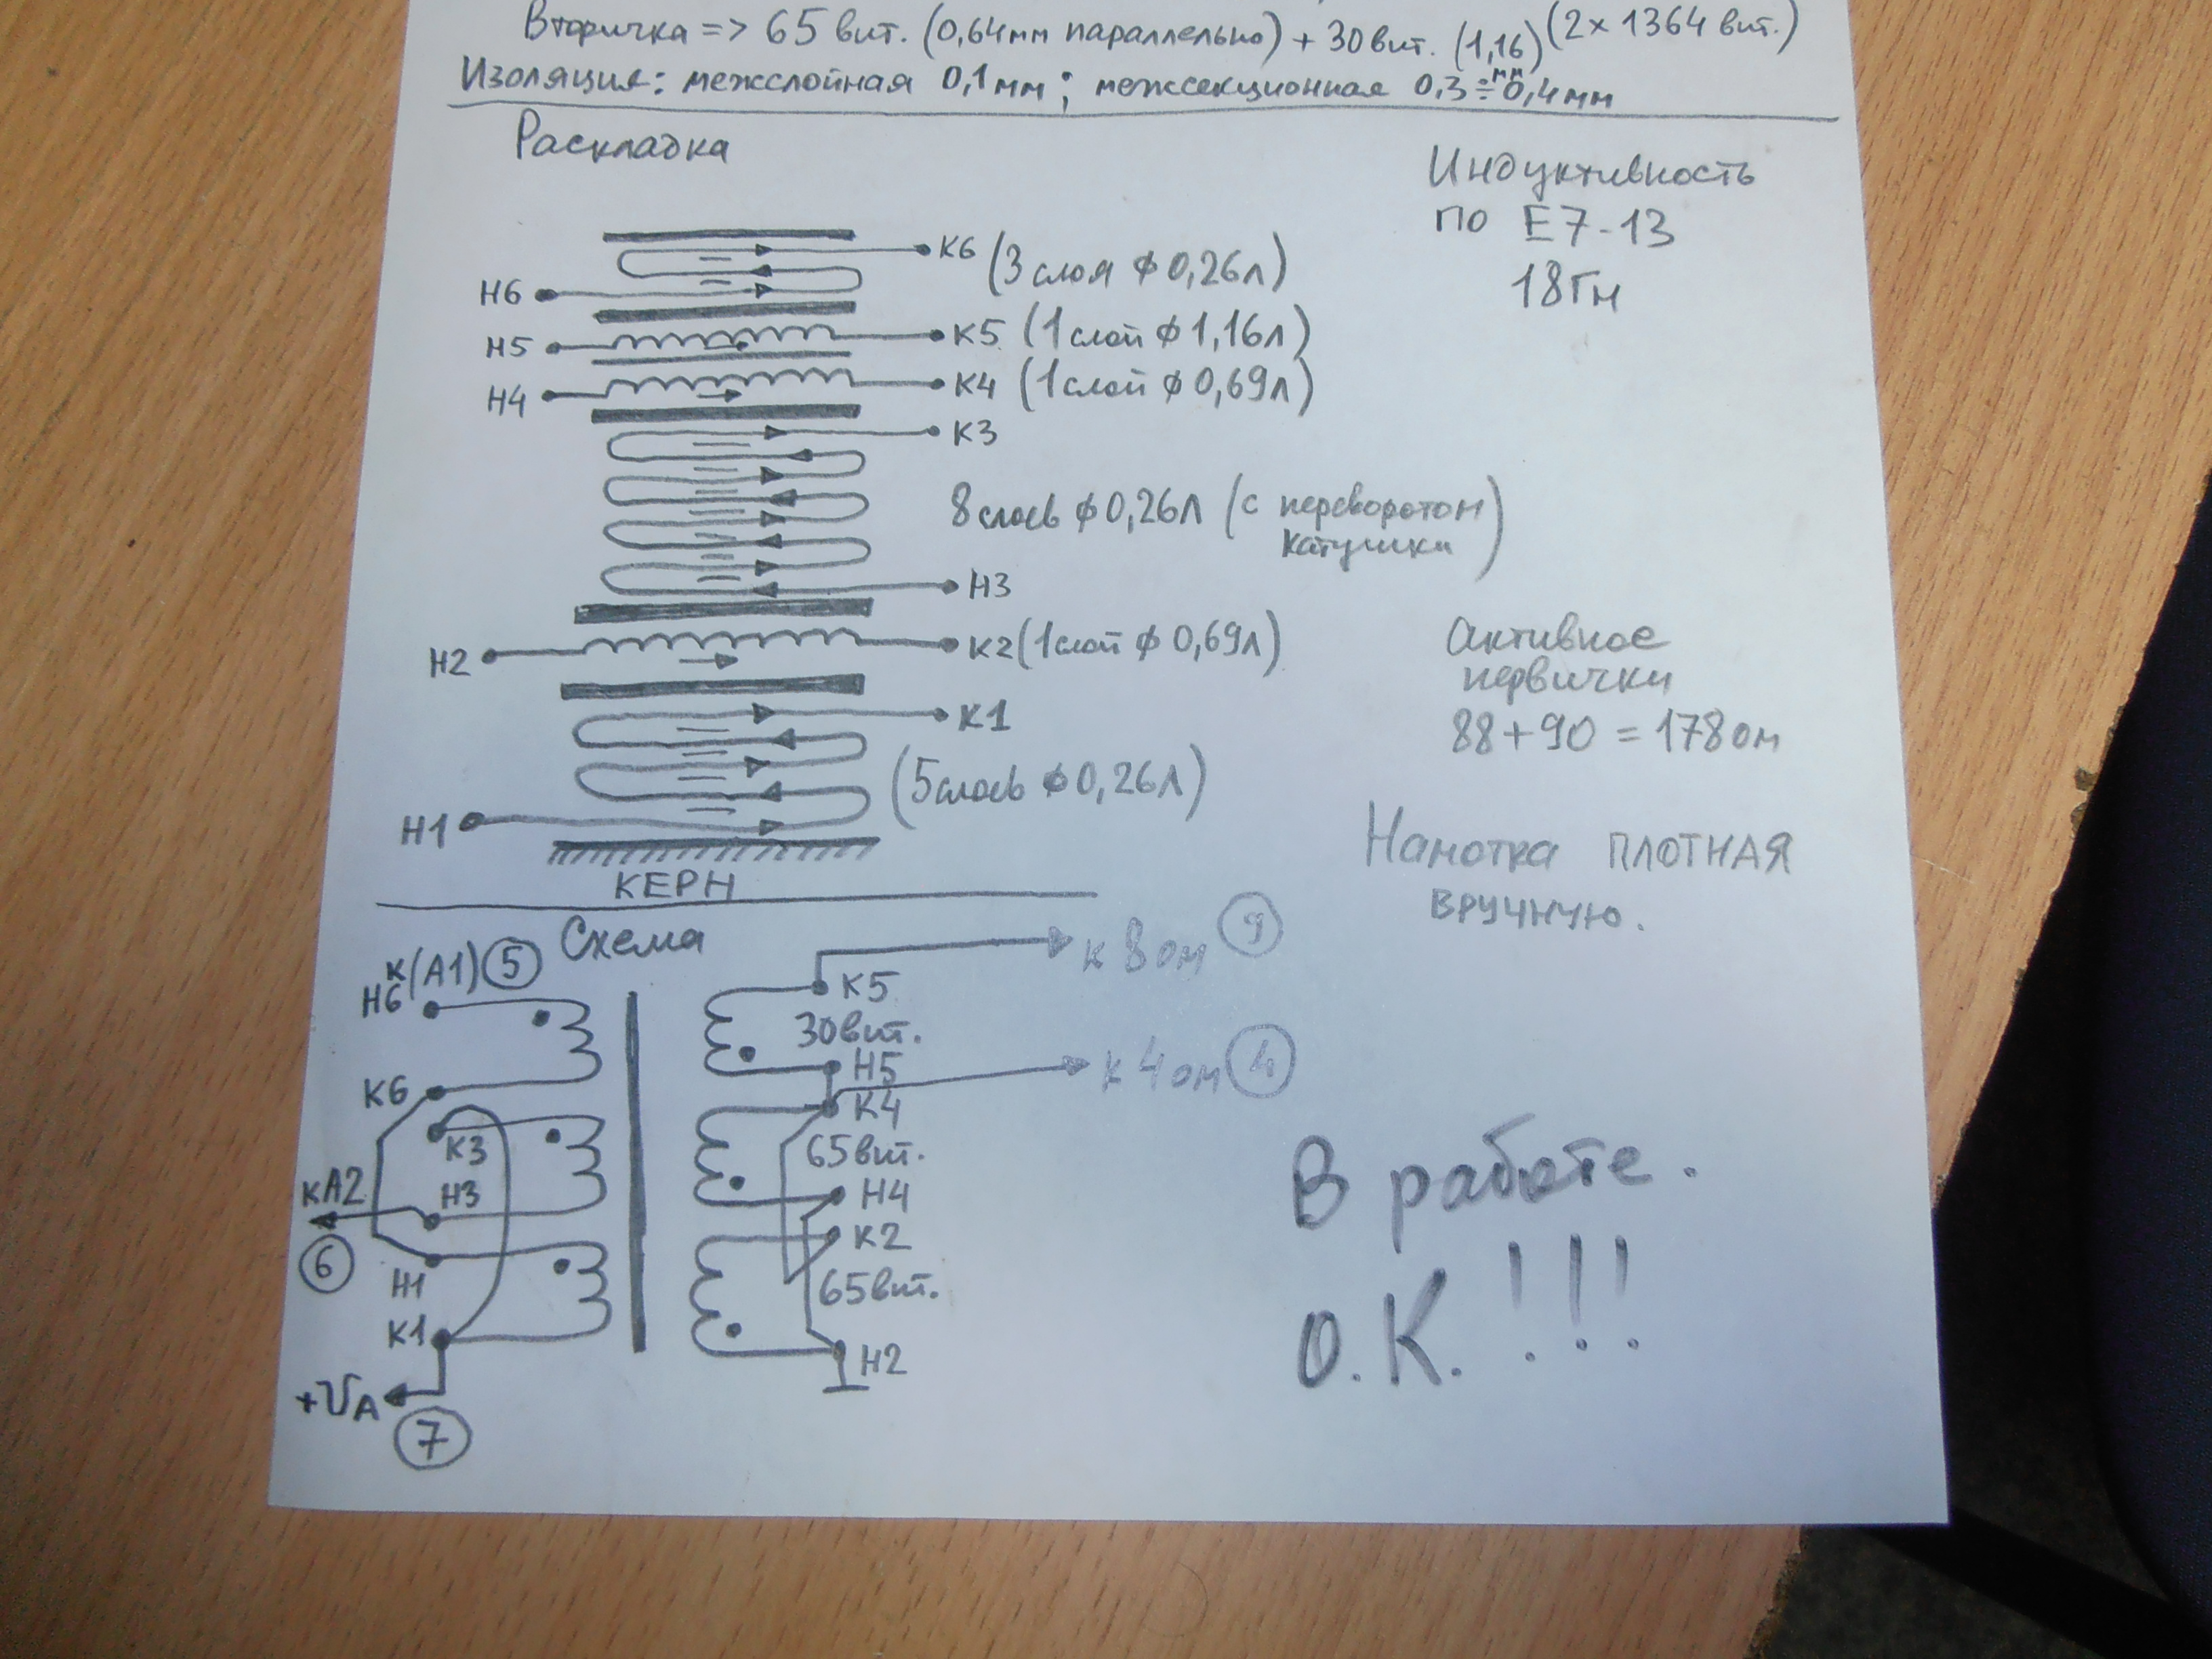 Вторичка => 65 вит. (0,64мм параллельно) + 30 вит. (1,16) (2 х 1364 вит.)
мм
Изоляция: межслойная 0,1мм; межсекционная 0,3÷0,4мм
Раскладка
Индуктивность
по Е7-13
18Гн
К6 (3 слоя ϕ 0,26л)
Н6
Н5
К5 (1 слой ϕ 1,16л)
Н4
К4 (1 слой ϕ 0,69л)
К3
8 слоев ϕ 0,26л (с переворотом
катушки)
Н3
Н2
К2 (1 слой ϕ 0,69л)
Активное
первички
88+90 = 178ом
К1
(5 слоев ϕ 0,26л)
Н1
КЕРН
Намотка ПЛОТНАЯ
ВРУЧНУЮ.
Схема
к(А1) 5
Н6
К6
К3
кА2
Н3
6
Н1
К1
+UА
7
к 8 ом 9
К5
30 вит.
Н5
к 4 ом 4
К4
65 вит.
Н4
К2
65 вит.
Н2
В работе.
О.К.!!!